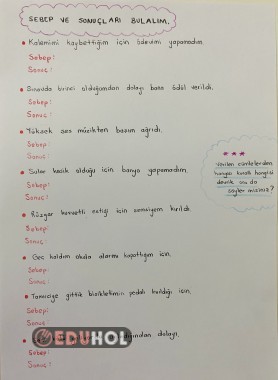 SEBEP VE SONUÇLARI BULALIM.
Kalemimi kaybettiğim için ödevimi yapamadım.
Sebep:
Sonuç:
Sınavda birinci olduğumdan dolayı bana ödül verildi.
Sebep:
Sonuç:
Yüksek ses müzikten başım ağrıdı.
Sebep:
Sonuç:
Sular kesik olduğu için banyo yapamadım.
Sebep:
Sonuç:
Verilen cümlelerden
hangisi kurallı hangisi
devrik onu da
söyler misiniz?
Rüzgar kuvvetli estiği için şemsiyem kırıldı.
Sebep:
Sonuç:
Geç kaldım okula alarmı kapattığım için.
Sebep:
Sonuç:
Tamirciye gittik bisikletimin pedalı kırıldığı için.
Sebep:
Sonuç:
dolayı.
Sebep:
Sonuç:
EDUHOL